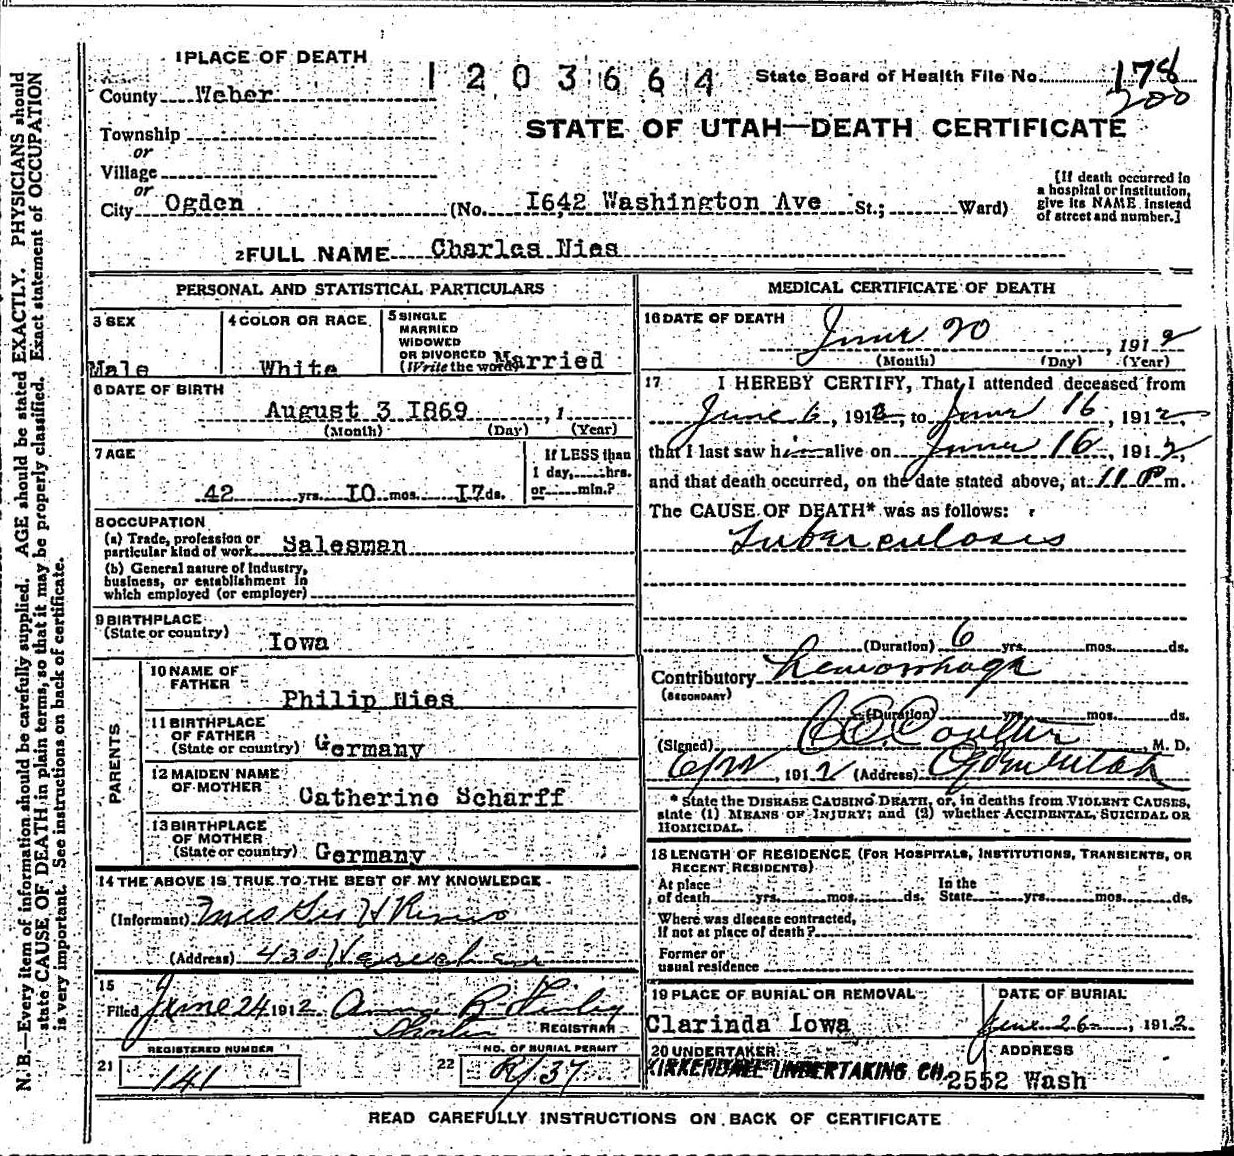 1 PLACE OF DEATH
1203664
State Board of Health File No. 178
200
County Weber
STATE OF UTAH—DEATH CERTIFICATE
Township
or
Village
or
City Ogden (No. I642 Washington Ave St.; Ward)
[If death occurred in
a hospital or institution,
give its NAME instead
of street and number.]
2 FULL NAME Charles Nies
PERSONAL AND STATISTICAL PARTICULARS
3 SEX
Male
4 COLOR OR RACE
White
5 SINGLE
MARRIED
WIDOWED
OR DIVORCED
(Write the word) Married
6 DATE OF BIRTH
August 3 I869 , 1
(Month) (Day) (Year)
7 AGE
42 yrs. I0 mos. I7 ds.
If LESS than
1 day, hrs.
or min.?
8 OCCUPATION
(a) Trade, profession or
particular kind of work Salesman
(b) General nature of Industry,
business, or establishment in
which employed (or employer)
9 BIRTHPLACE
(State or country) Iowa
PARENTS
10 NAME OF
FATHER
Philip Nies
11 BIRTHPLACE
OF FATHER
(State or country) Germany
12 MAIDEN NAME
OF MOTHER Catherine Scharff
13 BIRTHPLACE
OF MOTHER
(State or country) Germany
14 THE ABOVE IS TRUE TO THE BEST OF MY KNOWLEDGE
(Informant) Mrs Geo H
(Address) 430
15
Filed June 24 1912
REGISTRAR
REGISTERED NUMBER
21 141
NO. OF BURIAL PERMIT
22 R/37
MEDICAL CERTIFICATE OF DEATH
16 DATE OF DEATH
June 20 , 1912
(Month) (Day) (Year)
17 I HEREBY CERTIFY, That I attended deceased from
June 6 , 1912, to June 16 , 1912,
that I last saw him alive on June 16 , 1912,
and that death occurred, on the date stated above, at 11 P m.
The CAUSE OF DEATH* was as follows:
Tuberculosis
(Duration) 6 yrs. mos. ds.
Contributory hemorrhage
(SECONDARY)
(Duration) yrs. mos. ds.
(Signed) Coulter , M. D.
, 1912 (Address) Ogden Utah
* State the DISEASE CAUSING DEATH, or, in deaths from VIOLENT CAUSES,
state (1) MEANS OF INJURY; and (2) whether ACCIDENTAL, SUICIDAL OR
HOMICIDAL.
18 LENGTH OF RESIDENCE (FOR HOSPITALS, INSTITUTIONS, TRANSIENTS, OR
RECENT RESIDENTS)
At place
of death yrs. mos. ds.
In the
State yrs. mos. ds.
Where was disease contracted,
If not at place of death?
Former or
usual residence
19 PLACE OF BURIAL OR REMOVAL
Clarinda Iowa
DATE OF BURIAL
June 26 , 1912
20 UNDERTAKER
KIRKENDALL UNDERTAKING CO.
ADDRESS
2552 Wash
READ CAREFULLY INSTRUCTIONS ON BACK OF CERTIFICATE
N. B.—Every item of information should be carefully supplied. AGE should be stated EXACTLY. PHYSICIANS should
state CAUSE OF DEATH in plain terms, so that it may be properly classified. Exact statement of OCCUPATION
is very important. See instructions on back of certificate.